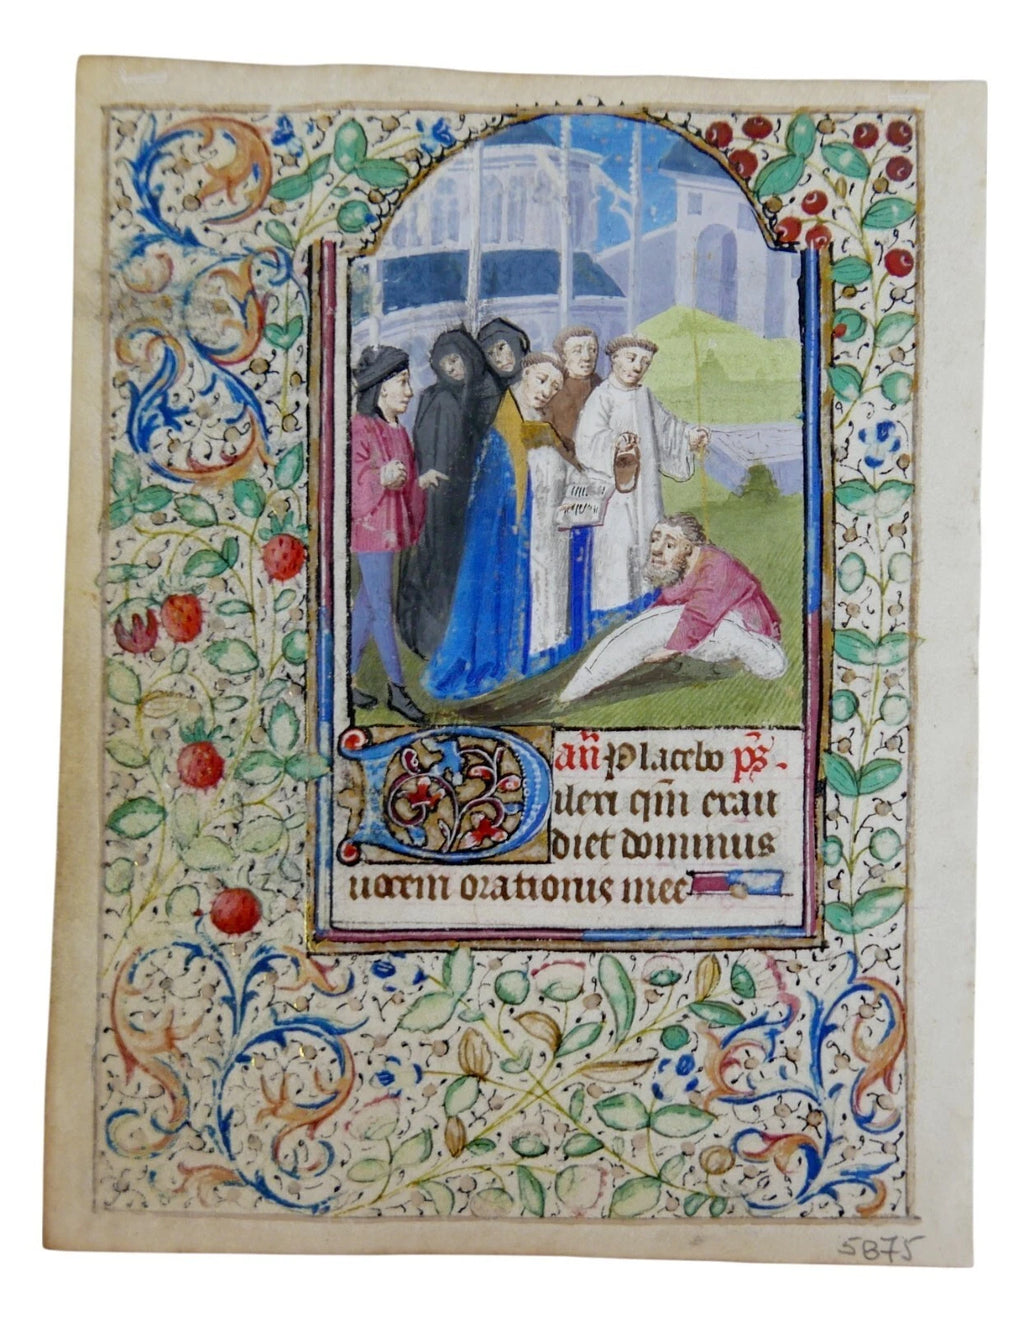 Añ Placebo ps̃.
Dilexi qm̃ exau
diet dominus
uocem orationis mee
5875